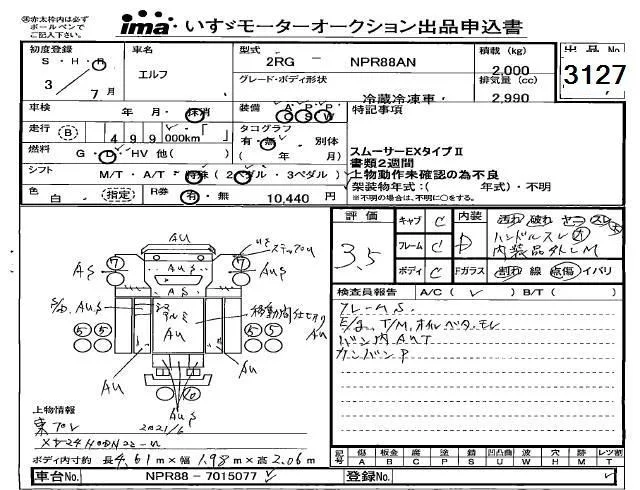 ㊟赤太枠内は必ず
ボールペンで
ご記入下さい。
ima いすゞモーターオークション出品申込書
初度登録
S・H・R
3 7月
車名
エルフ
型式
2RG - NPR88AN
グレード・ボディ形状
冷蔵冷凍車
積載 (kg)
2,000
排気量 (cc)
2,990
出品No
3127
車検
年・月・抹消
装備
A・P・P・
C S W
特記事項
走行 B 499 000km
タコグラフ
有・無・別体
( 年 月)
燃料
G・D・HV 他( )
シフト
M/T・A/T・特殊(2ペダル・3ペダル)
スムーサーEXタイプⅡ
書類2週間
上物動作未確認の為不良
架装物年式:( 年式)・不明
※不明の場合は、不明に○をする。
色
白 指定
R券
有・無 10,440円
評価
3.5
キャブ C
フレーム C
ボディ C
内装
D
Fガラス
汚れ 破れ ヤコ スレ
ハンドルスレ
内装品外しM
割れ 線 点傷 イバリ
検査員報告 A/C( ✓ ) B/T( )
フレームS.
E/g, T/M, オイルベタ、モレ
バン内AUT
カンバンP
AU
ステップU
AS
AUS
AS
AU
AU
AU
AUS
7
7
5 5
5 5
上物情報
東プレ 2021/6
ボディ内寸約 長4.61m×幅1.98m×高2.06m
記号
傷 板金 腐 塗 錆 凹凸曲 波 穴 跡 レツ割
A B C P S U W H M T
車台No. NPR88 - 7015077
登録No.